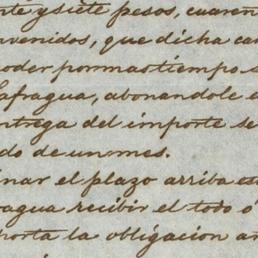 nte y siete pesos, cuaren
nvenidos, que dicha can
oder por mas tiempo s
afragua, abonandole e
ntrega del importe se
do de un mes.
inar el plazo arriba es
ragua recibir el todo ó
porta la obligacion a